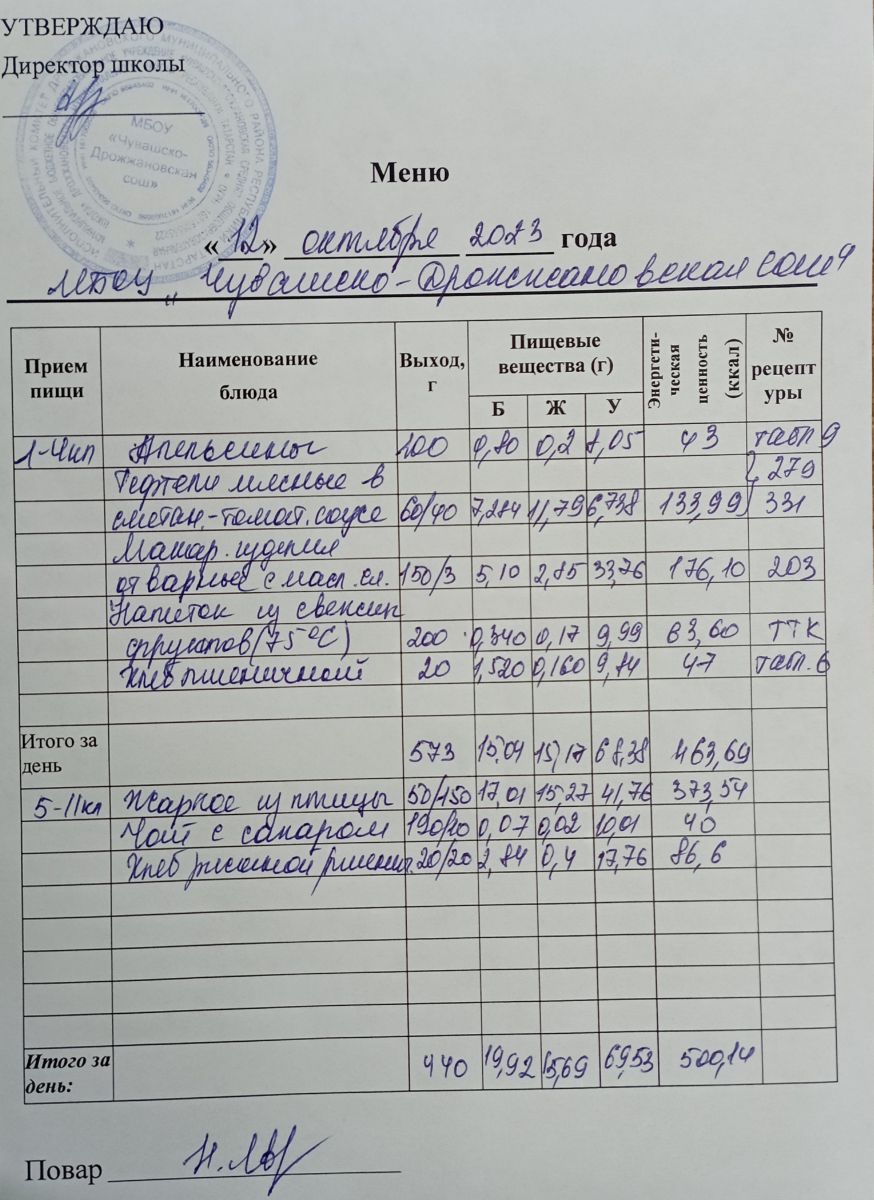 УТВЕРЖДАЮ
Директор школы
МБОУ
«Чувашско-
Дрожжановская
сош»
Меню
«12» октября 2023 года
МБОУ „Чувашско-Дрожжановская сош"
Прием пищи Наименование блюда Выход, г Пищевые вещества (г) Энергети-ческая ценность (ккал) № рецептуры
Б Ж У
1-4кл Апельсины 100 0,80 0,2 8,05 43 табл 9
Тефтели мясные в 279
сметан.-томат. соусе 60/40 7,284 11,79 6,738 133,99 331
Макар. изделия
отварные с масл. сл. 150/3 5,10 2,85 33,76 176,10 203
Напиток из свежих
фруктов (75°С) 200 0,340 0,17 9,99 63,60 ТТК
Хлеб пшеничный 20 1,520 0,160 9,84 47 табл. 6
Итого за день 573 15,04 15,17 68,38 463,69
5-11кл Жаркое из птицы 50/150 17,01 15,27 41,76 373,54
Чай с сахаром 190/10 0,07 0,02 10,01 40
Хлеб ржаной пшенич. 20/20 2,84 0,4 17,76 86,6
Итого за день: 440 19,92 15,69 69,53 500,14
Повар